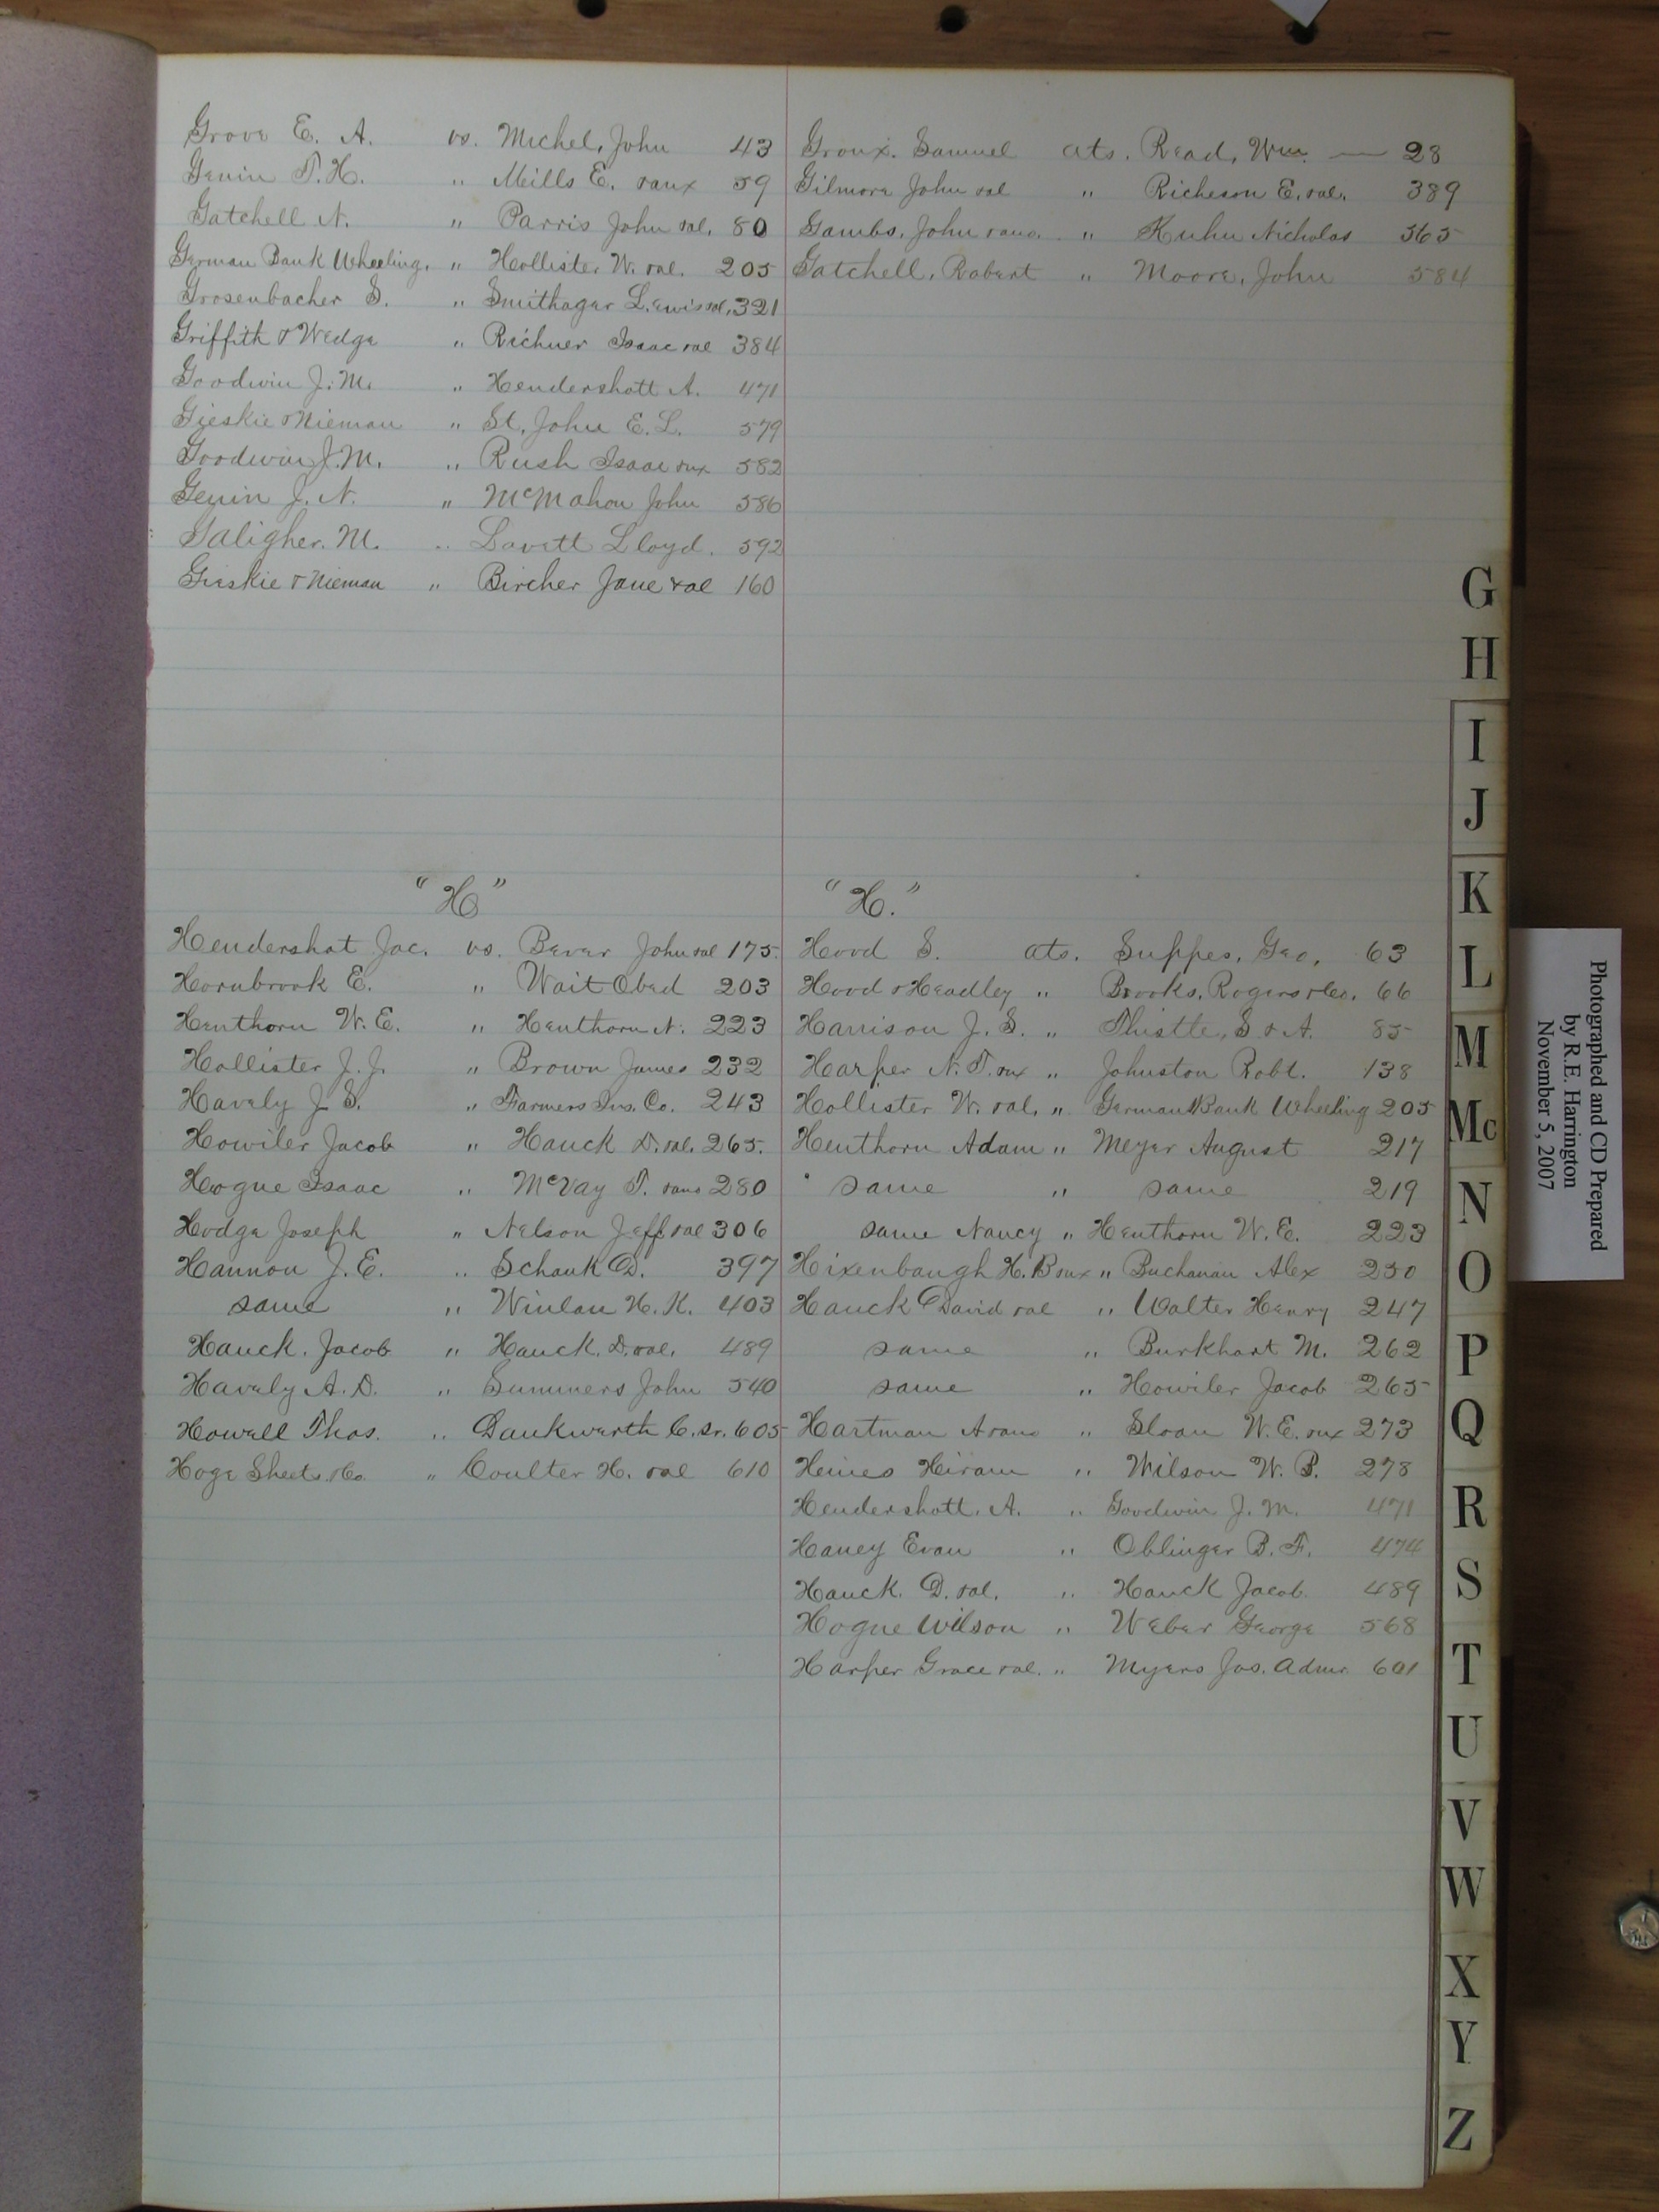 Grove E. A. vs. Michel, John 43
Genin T. H. " Mills E. & ux 59
Gatchell N. " Parris John & al. 80
German Bank Wheeling. " Hollister W. & al. 205
Grosenbacher S. " Smithager Lewis & al. 321
Griffith & Wedge " Richner Isaac & al 384
Goodwin J. M. " Hendershott A. 471
Gieskie & Nieman " St. John E. L. 579
Goodwin J. M. " Rush Isaac & ux 582
Genin J. N. " McMahon John 586
Galigher. M. " Lovett Lloyd. 592
Gieskie & Nieman " Bircher Jane & al 160
Groux. Samuel ats. Read, Wm. — 28
Gilmore John & al " Richeson E. & al. 389
Gambs, John & ano. " Kuhn Nicholas 565
Gatchell, Robert " Moore, John 584
"H"
Hendershot Jac. vs. Bever John & al 175.
Hornbrook E. " Wait Obed 203
Henthorn W. E. " Henthorn N. 223
Hollister J. J. " Brown James 232
Havely J. S. " Farmers Ins. Co. 243
Howiler Jacob " Hauck D. & al. 265.
Hogue Isaac " McVay T. & ano 280
Hodge Joseph " Nelson Jeff & al 306
Hannon J. E. " Schank D. 397
same " Winlan H. K. 403
Hauck. Jacob " Hauck. D. & al. 489
Havely A. D. " Summers John 540
Howell Thos. " Dankwarth C. Sr. 605
Hoge Sheets & Co. " Coulter H. & al 610
"H."
Hood S. ats. Suppes, Geo. 63
Hood & Headley " Brooks, Rogers & Co. 66
Harrison J. S. " Thistle, S & A. 85
Harper N. T. & ux " Johnston Robt. 138
Hollister W. & al. " German Bank Wheeling 205
Henthorn Adam " Meyer August 217
same " same 219
same Nancy " Henthorn W. E. 223
Hixenbaugh H. B & ux " Buchanan Alex 230
Hauck David & al " Walter Henry 247
same " Burkhart M. 262
same " Howiler Jacob 265
Hartman A & ano " Sloan W. E. & ux 273
Heines Hiram " Wilson W. B. 278
Hendershott. A. " Goodwin J. M. 471
Haney Evan " Oblinger B. F. 474
Hauck. D. & al. " Hauck Jacob. 489
Hogue Wilson " Weber George 568
Harper Grace & al. " Myers Jos. Admr. 601
G
H
I
J
K
L
M
Mc
N
O
P
Q
R
S
T
U
V
W
X
Y
Z
Photographed and CD Prepared
by R.E. Harrington
November 5, 2007